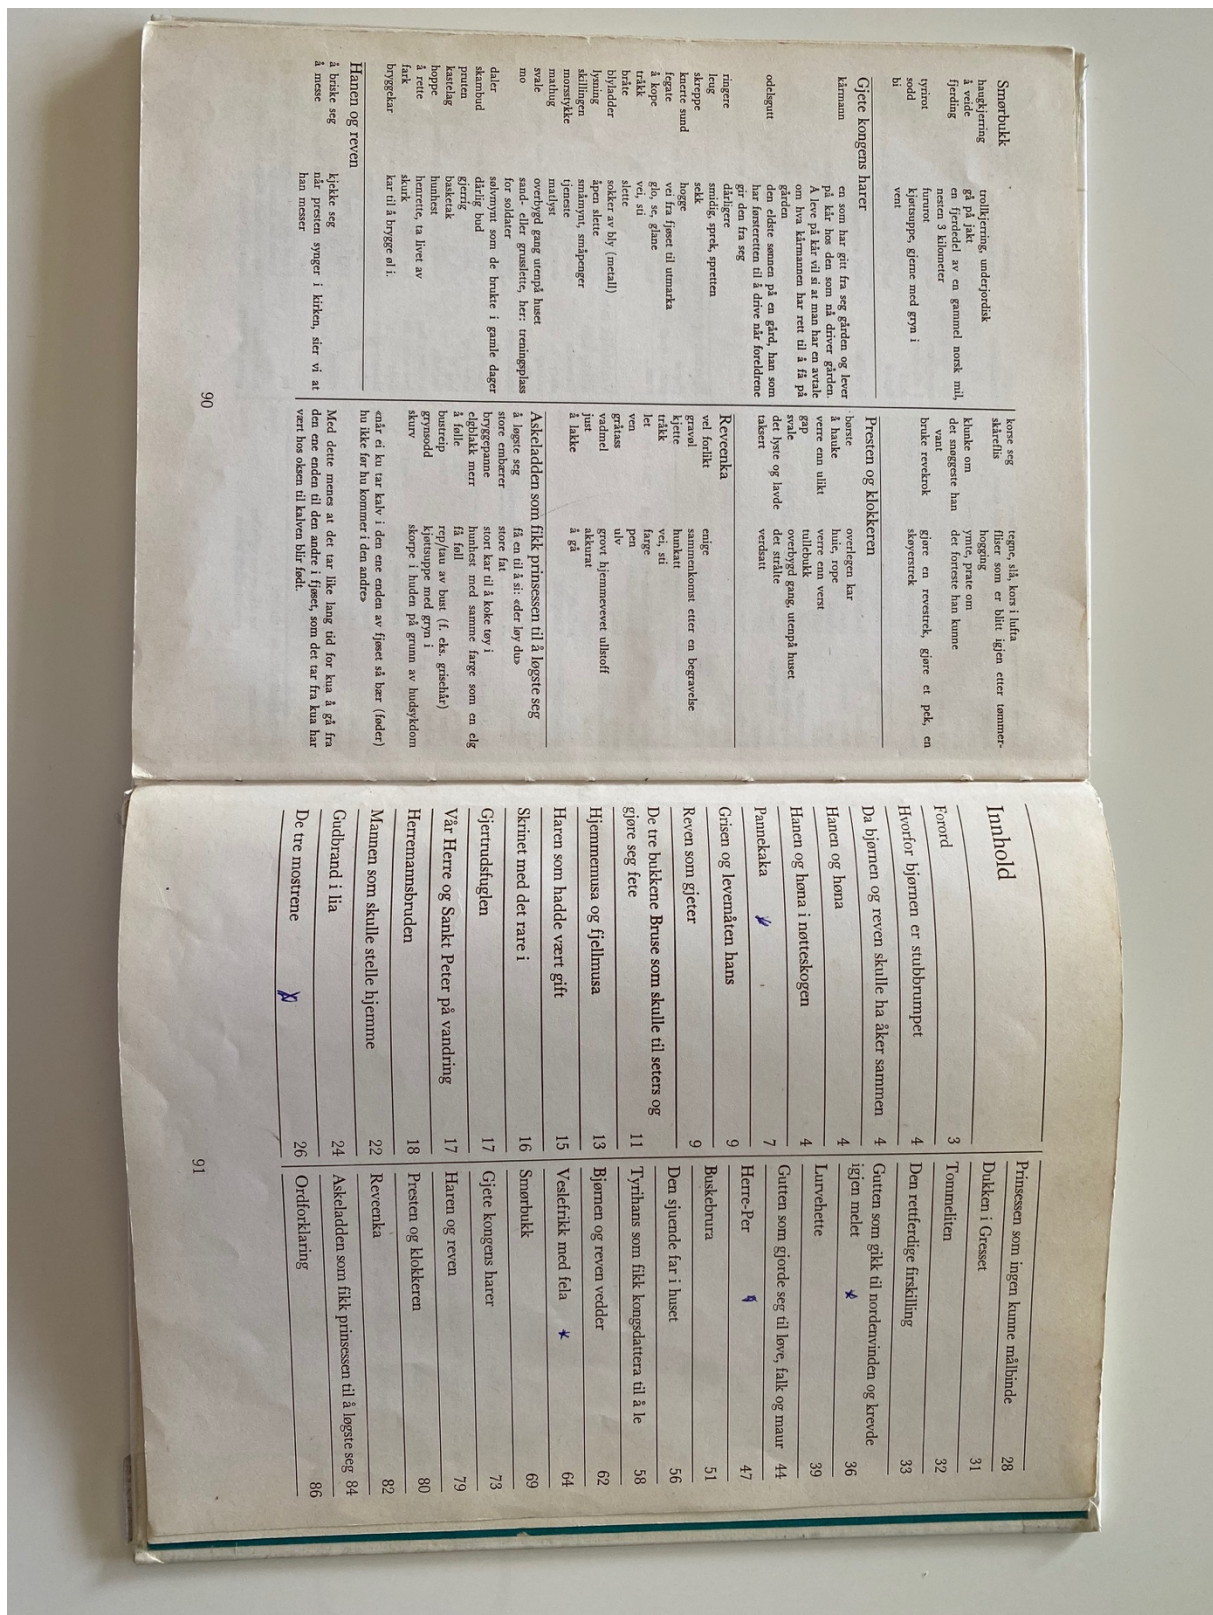 Smørbukk
haugkjerring trollkjerring, underjordisk
å veide gå på jakt
fjerding en fjerdedel av en gammel norsk mil,
nesten 3 kilometer
tyrirot fururot
sodd kjøttsuppe, gjerne med gryn i
bi vent
Gjete kongens harer
kårmann en som har gitt fra seg gården og lever
på kår hos den som nå driver gården.
Å leve på kår vil si at man har en avtale
om hva kårmannen har rett til å få på
gården
odelsgutt den eldste sønnen på en gård, han som
har førsteretten til å drive når foreldrene
gir den fra seg
ringere dårligere
leug smidig, sprek, spretten
skreppe sekk
knerte sund hogge
fegate vei fra fjøset til utmarka
å kope glo, se, glane
tråkk vei, sti
bråte slette
blyladder sokker av bly (metall)
lysning åpen slette
skillingen småmynt, småpenger
morsstykke tjeneste
mathug matlyst
svale overbygd gang utenpå huset
mo sand- eller grusslette, her: treningsplass
for soldater
daler sølvmynt som de brukte i gamle dager
skambud dårlig bud
pruten gjerrig
kastelag basketak
hoppe hunhest
å rette henrette, ta livet av
fark skurk
bryggekar kar til å brygge øl i.
Hanen og reven
å briske seg kjekke seg
å messe når presten synger i kirken, sier vi at
han messer
korse seg tegne, slå, kors i lufta
skåreflis fliser som er blitt igjen etter tømmer-
hogging
klunke om ymte, prate om
det snøggeste han det forteste han kunne
vant
bruke revekrok gjøre en revestrek, gjøre et pek, en
skøyerstrek
Presten og klokkeren
børste overlegen kar
å hauke huie, rope
verre enn ulikt verre enn verst
gap tullebukk
svale overbygd gang, utenpå huset
det lyste og lavde det strålte
taksert verdsatt
Reveenka
vel forlikt enige
gravøl sammenkomst etter en begravelse
kjette hunkatt
tråkk vei, sti
let farge
ven pen
gråtass ulv
vadmel grovt hjemmevevet ullstoff
just akkurat
å lakke å gå
Askeladden som fikk prinsessen til å løgste seg
å løgste seg få en til å si: «der løy du»
store embærer store fat
bryggepanne stort kar til å koke tøy i
elgblakk merr hunhest med samme farge som en elg
å følle få føll
bustreip rep/tau av bust (f. eks. grisehår)
grynsodd kjøttsuppe med gryn i
skurv skorpe i huden på grunn av hudsykdom
«når ei ku tar kalv i den ene enden av fjøset så bær (føder)
hu ikke før hu kommer i den andre»
Med dette menes at det tar like lang tid for kua å gå fra
den ene enden til den andre i fjøset, som det tar fra kua har
vært hos oksen til kalven blir født.
90
Innhold
Forord 3
Hvorfor bjørnen er stubbrumpet 4
Da bjørnen og reven skulle ha åker sammen 4
Hanen og høna 4
Hanen og høna i nøtteskogen 4
Pannekaka 7
Grisen og levemåten hans 9
Reven som gjeter 9
De tre bukkene Bruse som skulle til seters og
gjøre seg fete 11
Hjemmemusa og fjellmusa 13
Haren som hadde vært gift 15
Skrinet med det rare i 16
Gjertrudsfuglen 17
Vår Herre og Sankt Peter på vandring 17
Herremannsbruden 18
Mannen som skulle stelle hjemme 22
Gudbrand i lia 24
De tre mostrene 26
Prinsessen som ingen kunne målbinde 28
Dukken i Gresset 31
Tommeliten 32
Den rettferdige firskilling 33
Gutten som gikk til nordenvinden og krevde
igjen melet 36
Lurvehette 39
Gutten som gjorde seg til løve, falk og maur 44
Herre-Per 47
Buskebrura 51
Den sjuende far i huset 56
Tyrihans som fikk kongsdattera til å le 58
Bjørnen og reven vedder 62
Veslefrikk med fela 64
Smørbukk 69
Gjete kongens harer 73
Haren og reven 79
Presten og klokkeren 80
Reveenka 82
Askeladden som fikk prinsessen til å løgste seg 84
Ordforklaring 86
91